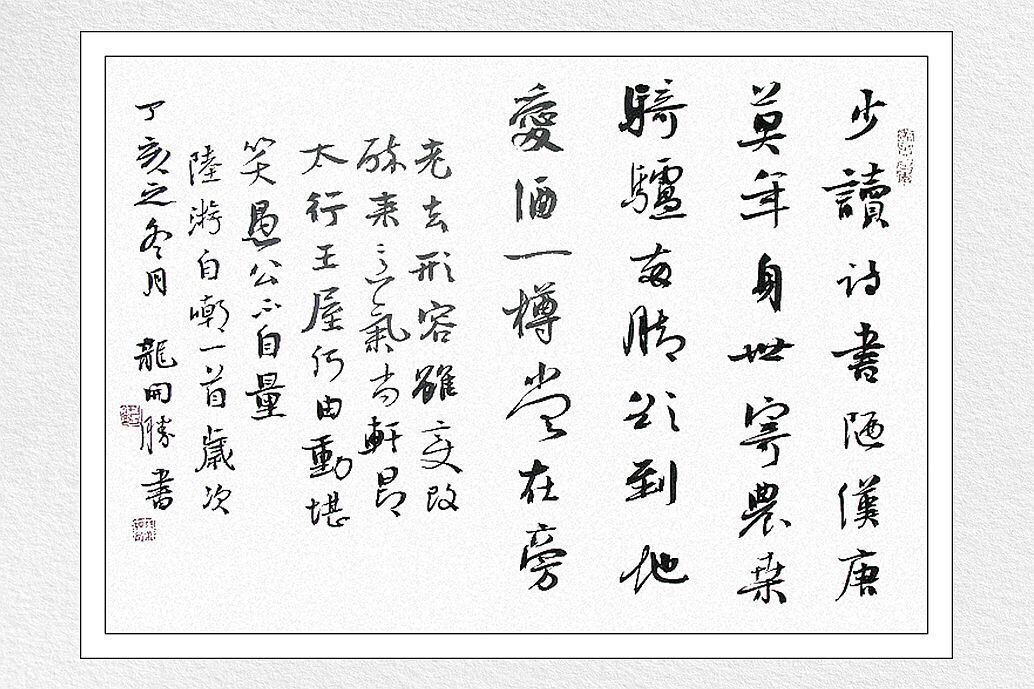 少讀詩書陋漢唐
莫年身世寄農桑
騎驢兩腳欲到地
愛酒一樽常在旁
老去形容雖變改
醉來意氣尚軒昂
太行王屋何由動堪
笑愚公不自量
陸游自嘲一首歲次
丁亥之冬月 龍開勝書